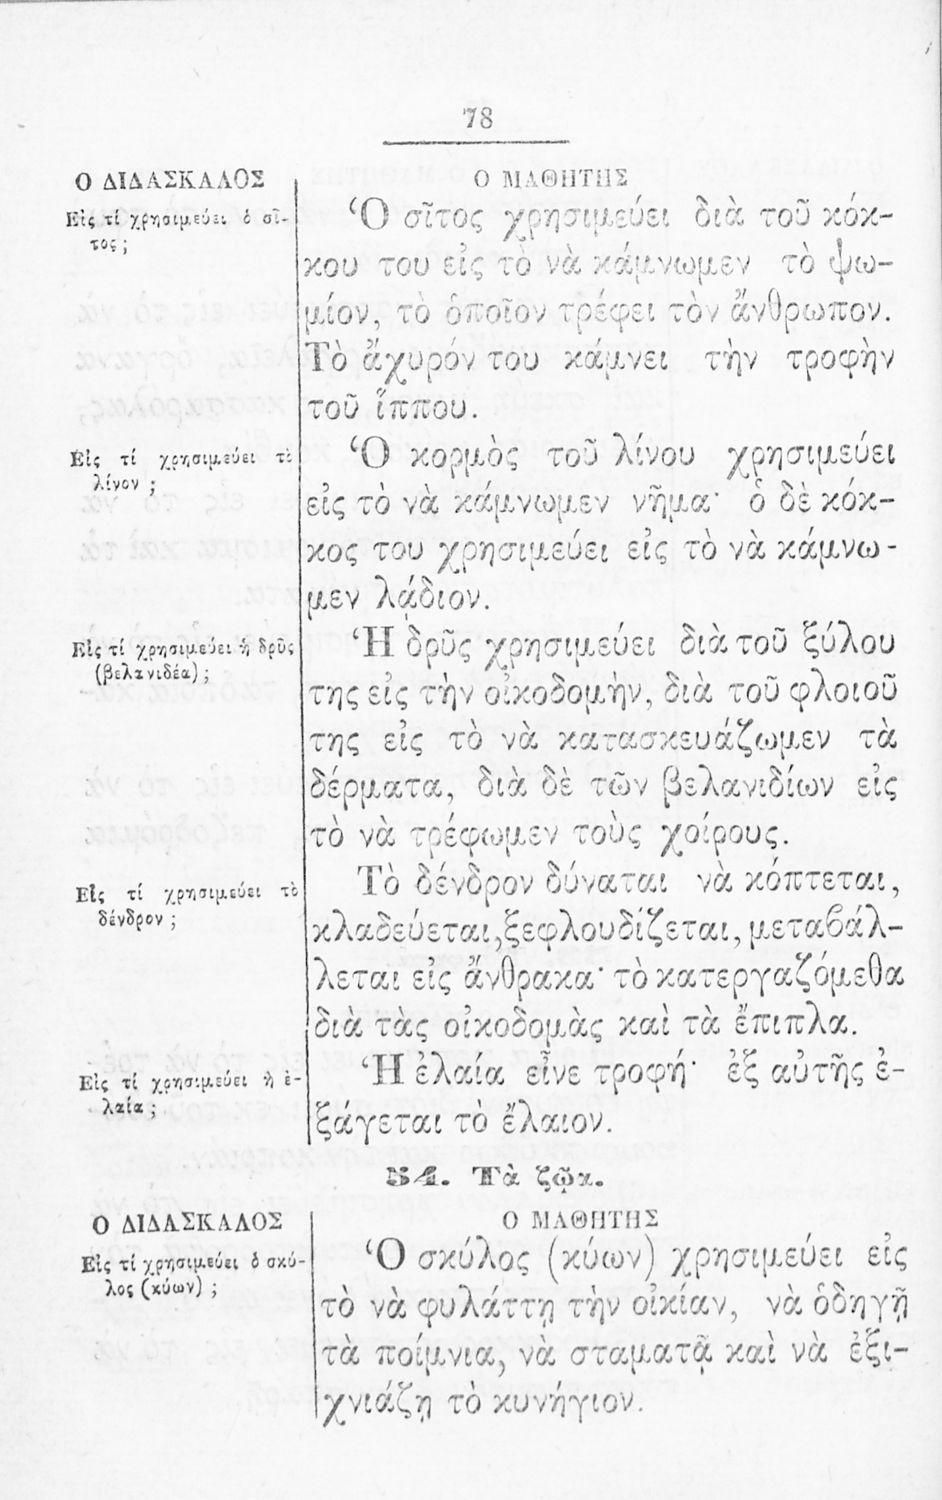 78
Ο ΔΙΔΑΣΚΑΛΟΣ
Εἰς τί χρησιμεύει ὁ σῖ-
τος ;
Ο ΜΑΘΗΤΗΣ
Ὁ σῖτος χρησιμεύει διὰ τοῦ κόκ-
κου του εἰς τὸ νὰ κάμνωμεν τὸ ψω-
μίον, τὸ ὁποῖον τρέφει τὸν ἄνθρωπον.
Τὸ ἄχυρόν του κάμνει τὴν τροφὴν
τοῦ ἵππου.
Εἰς τί χρησιμεύει τὸ
λίνον ;
Ὁ κορμὸς τοῦ λίνου χρησιμεύει
εἰς τὸ νὰ κάμνωμεν νῆμα· ὁ δὲ κόκ-
κος του χρησιμεύει εἰς τὸ νὰ κάμνω-
μεν λάδιον.
Εἰς τί χρησιμεύει ἡ δρῦς
(βελανιδέα) ;
Ἡ δρῦς χρησιμεύει διὰ τοῦ ξύλου
της εἰς τὴν οἰκοδομὴν, διὰ τοῦ φλοιοῦ
της εἰς τὸ νὰ κατασκευάζωμεν τὰ
δέρματα, διὰ δὲ τῶν βελανιδίων εἰς
τὸ νὰ τρέφωμεν τοὺς χοίρους.
Εἰς τί χρησιμεύει τὸ
δένδρον ;
Τὸ δένδρον δύναται νὰ κόπτεται,
κλαδεύεται, ξεφλουδίζεται, μεταβάλ-
λεται εἰς ἄνθρακα· τὸ κατεργαζόμεθα
διὰ τὰς οἰκοδομὰς καὶ τὰ ἔπιπλα.
Εἰς τί χρησιμεύει ἡ ἐ-
λαία ;
Ἡ ἐλαία εἶνε τροφή· ἐξ αὐτῆς ἐ-
ξάγεται τὸ ἔλαιον.
54. Τὰ ζῷα.
Ο ΔΙΔΑΣΚΑΛΟΣ
Εἰς τί χρησιμεύει ὁ σκύ-
λος (κύων) ;
Ο ΜΑΘΗΤΗΣ
Ὁ σκύλος (κύων) χρησιμεύει εἰς
τὸ νὰ φυλάττῃ τὴν οἰκίαν, νὰ ὁδηγῇ
τὰ ποίμνια, νὰ σταματᾷ καὶ νὰ ἐξι-
χνιάζῃ τὸ κυνήγιον.